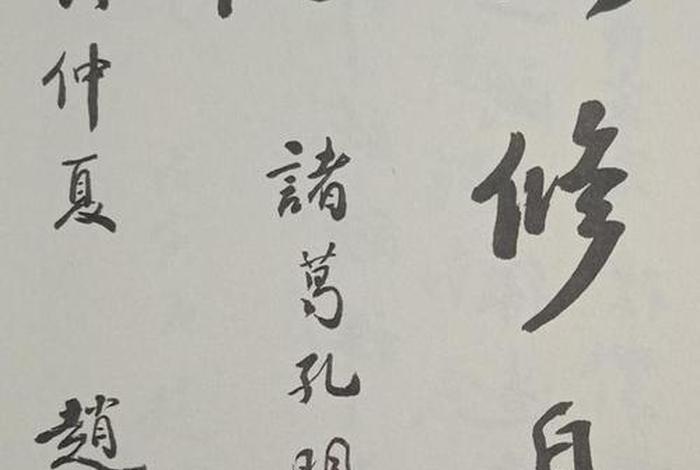 修
諸葛孔明
仲夏 趙